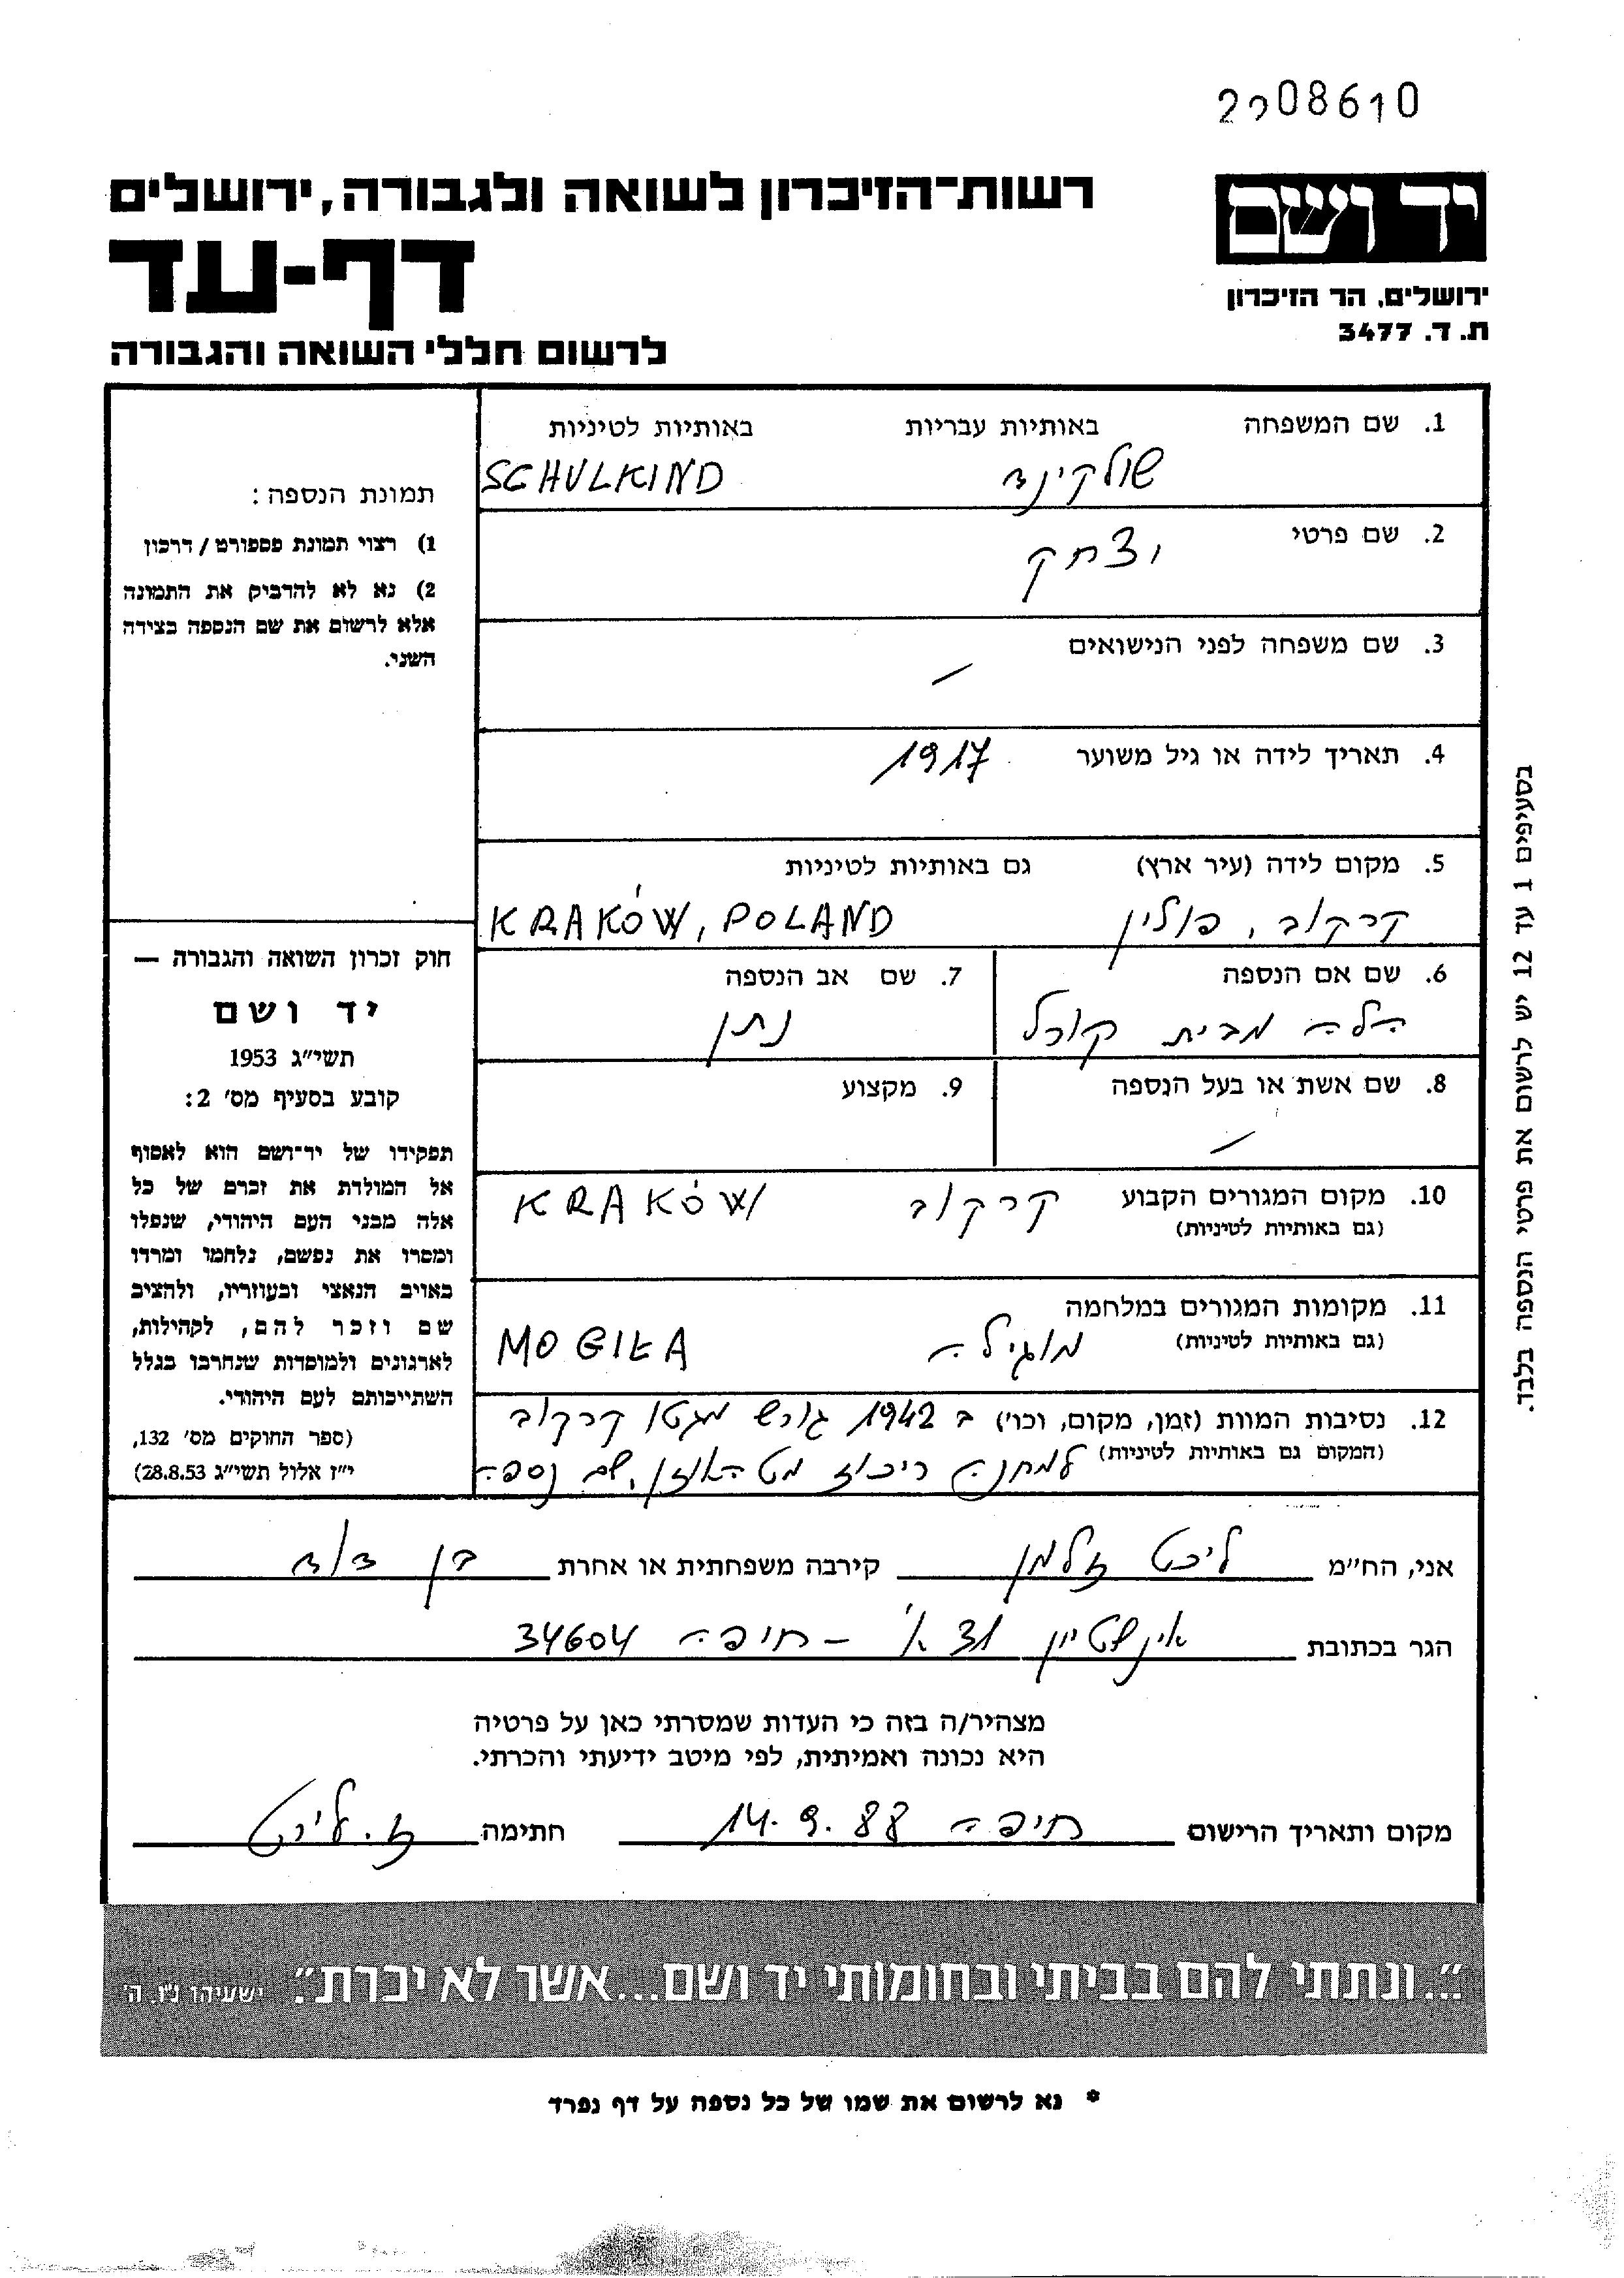 2008610
יד ושם
ירושלים, הר הזיכרון
ת. ד. 3477
רשות־הזיכרון לשואה ולגבורה, ירושלים
דף-עד
לרשום חללי השואה והגבורה
1. שם המשפחה באותיות עבריות באותיות לטיניות
שולקינד SCHULKIND
2. שם פרטי
יצחק
3. שם משפחה לפני הנישואים
—
4. תאריך לידה או גיל משוער 1917
5. מקום לידה (עיר ארץ) גם באותיות לטיניות
קרקוב, פולין KRAKÓW, POLAND
6. שם אם הנספה
הלה מבית קורל
7. שם אב הנספה
נתן
8. שם אשת או בעל הנספה
—
9. מקצוע
10. מקום המגורים הקבוע קרקוב KRAKÓW
(גם באותיות לטיניות)
11. מקומות המגורים במלחמה
(גם באותיות לטיניות) מוגילה MOGIŁA
12. נסיבות המוות (זמן, מקום, וכו') ב 1942 גורש מגטו קרקוב
(המקום גם באותיות לטיניות) למחנה ריכוז מטהאוזן, שם נספה
תמונת הנספה:
1) רצוי תמונת פספורט/דרכון
2) נא לא להדביק את התמונה
אלא לרשום את שם הנספה בצידה
השני.
חוק זכרון השואה והגבורה —
יד ושם
תשי״ג 1953
קובע בסעיף מס' 2:
תפקידו של יד־ושם הוא לאסוף
אל המולדת את זכרם של כל
אלה מבני העם היהודי, שנפלו
ומסרו את נפשם, נלחמו ומרדו
באויב הנאצי ובעוזריו, ולהציב
שם וזכר להם, לקהילות,
לארגונים ולמוסדות שנחרבו בגלל
השתייכותם לעם היהודי.
(ספר החוקים מס' 132,
י״ז אלול תשי״ג 28.8.53)
בסעיפים 1 עד 12 יש לרשום את פרטי הנספה בלבד.
אני, הח״מ ליכט זלמן קירבה משפחתית או אחרת בן דוד
הגר בכתובת אינשטיין 13א' – חיפה 34604
מצהיר/ה בזה כי העדות שמסרתי כאן על פרטיה
היא נכונה ואמיתית, לפי מיטב ידיעתי והכרתי.
מקום ותאריך הרישום חיפה 14.9.88 חתימה ז. ליכט
״...ונתתי להם בביתי ובחומותי יד ושם...אשר לא יכרת״. ישעיהו נ״ו, ה'
* נא לרשום את שמו של כל נספה על דף נפרד